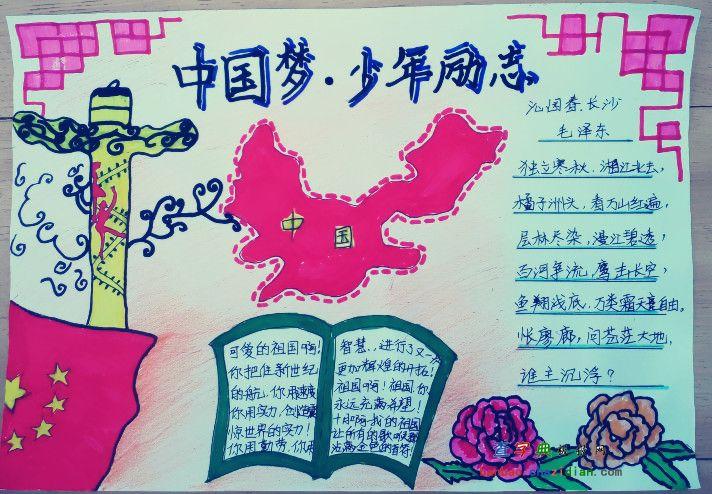 中国梦·少年励志
沁园春.长沙
毛泽东
独立寒秋,湘江北去,
橘子洲头,看万山红遍,
层林尽染,漫江碧透;
百河争流,鹰击长空,
鱼翔浅底,万类霜天竞自由。
怅廖廊,问苍茫大地,
谁主沉浮?
中国
可爱的祖国啊!
你把住新世纪
的航,你用速度
你用实力,
惊世界的实力!
你用勤劳,你用
智慧,,进行了又一
更加辉煌的开拓!
祖国啊!祖国,你
永远充满希望!
啊,我的祖国
让所有的歌喉
沾满金色的音符
查字典